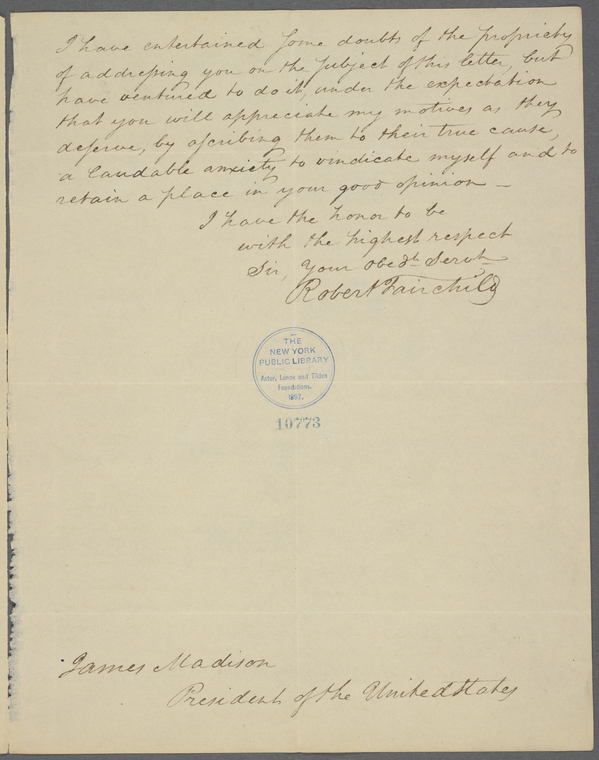 I have entertained some doubts of the propriety
of addressing you on the subject of this letter, but
have ventured to do it, under the expectation
that you will appreciate my motives as they
deserve, by ascribing them to their true cause,
a laudable anxiety to vindicate myself and to
retain a place in your good opinion —
I have the honor to be
with the highest respect
Sir, Your obedt. Servt.
Robert Fairchild
THE
NEW YORK
PUBLIC LIBRARY
Astor, Lenox and Tilden
Foundations.
1897.
10773
James Madison
President of the United States